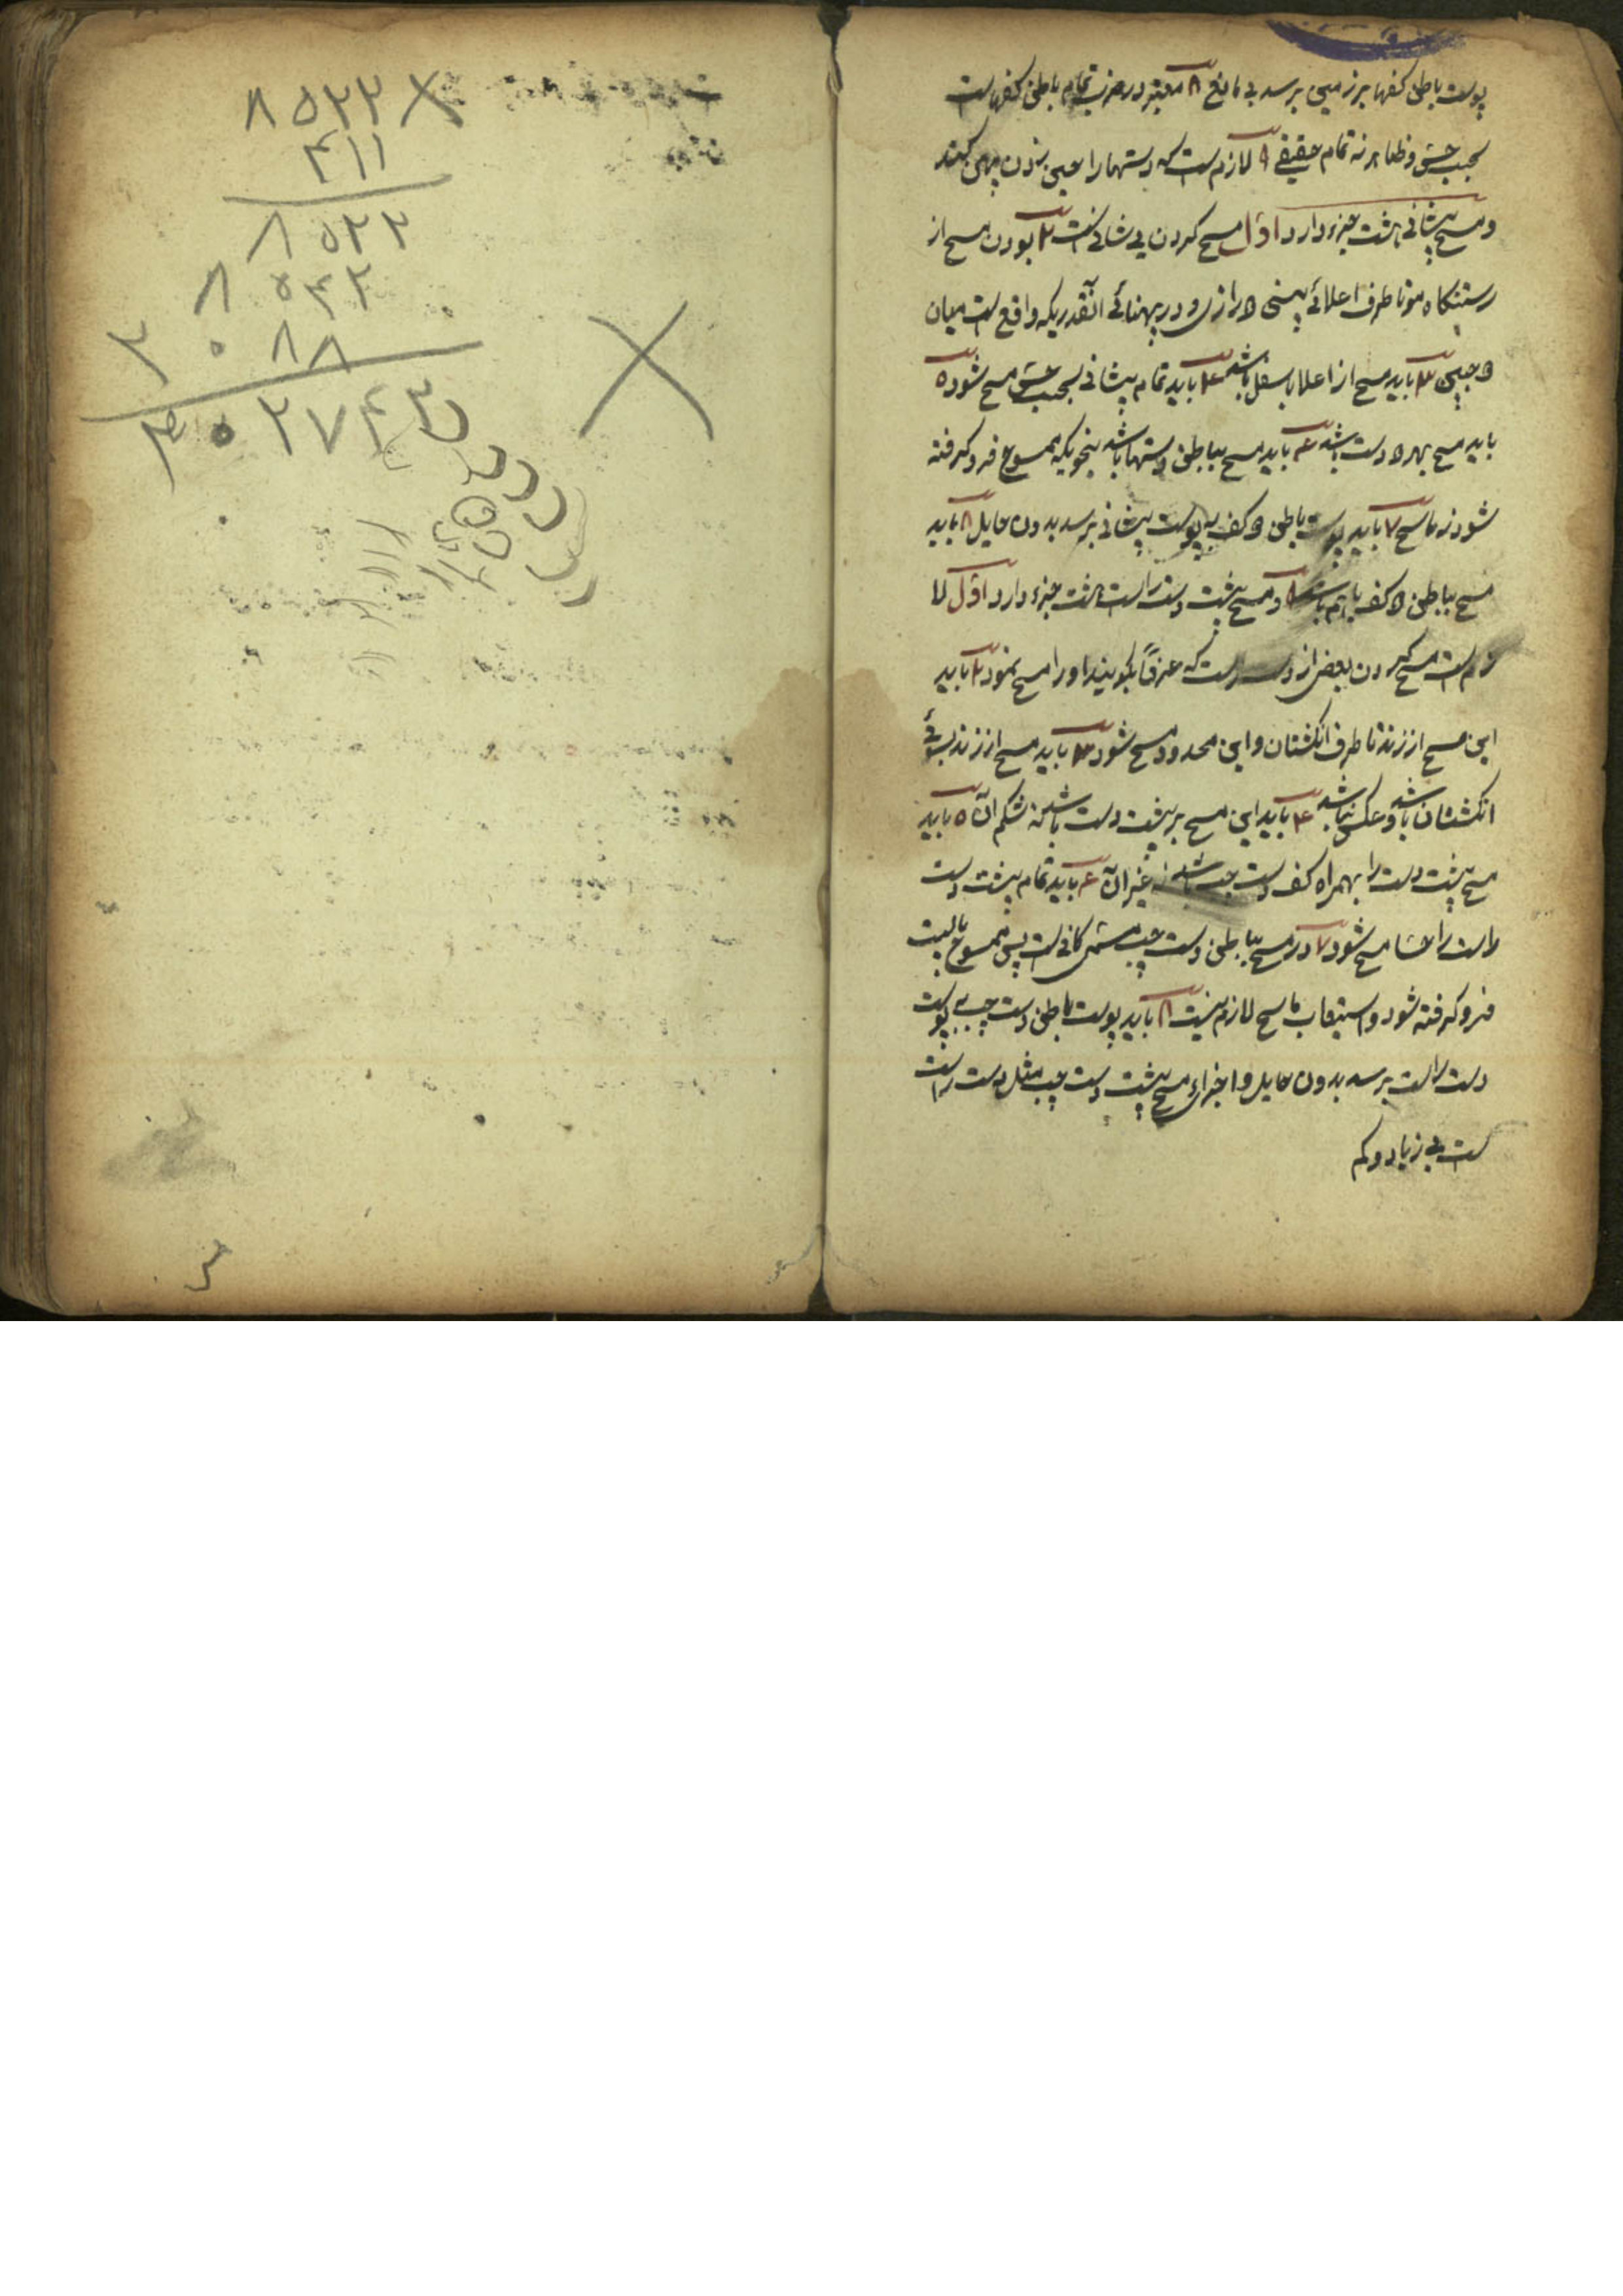 پوست باطن کفها بر زمین برسد بی مانع ۸ معتبر در ضرب تمام باطن کفهاست
بحسب حس و ظاهر نه تمام حقیقی ۹ لازم است که دستها را حین زدن پهن کند
و مسح پیشانی هشت جزء دارد اوّل مسح کردن پیشانی است ۲ بودن مسح از
رستنگاه مو تا طرف اعلائی بینی درازی و در پهنائی آنقدریکه واقع است میان
دو جبین ۳ باید مسح از اعلا باسفل باشد ۴ باید تمام پیشانی بحسب حس مسح شود ۵
باید مسح بهر دو دست باشد ۶ باید مسح بباطن دستها باشد بنحویکه ممسوح فرو گرفته
شود نه ماسح ۷ باید پوست باطن دو کف به پوست پیشانی برسد بدون حایل ۸ باید
مسح بباطن دو کف با هم باشد و مسح پشت دست راست هشت جزء دارد اوّل لا
زم است مسح کردن بعض از دست راست که عرفاً بگویند او را مسح نمود ۲ باید
این مسح از زند تا طرف انگشتان و این محدود مسح شود ۳ باید مسح از زند بسوئی
انگشتان باشد و عکس نباشد ۴ باید این مسح بر پشت دست باشد نه شکم آن ۵ باید
مسح پشت دست را بهمراه کف دست چپ باشد نه غیر آن ۶ باید تمام پشت دست
راست را حسّا مسح شود ۷ در مسح بباطن دست چپ مسمّی کافی است پس ممسوح بایست
فرو گرفته شود و استیعاب ماسح لازم نیست ۸ باید پوست باطن دست چپ به پوست
دست راست برسد بدون حایل و اجزاء مسح پشت دست چپ مثل دست راست
است بی زیاد و کم
۸۵۲۲
۴۱۱
۸۵۲۲
۸۵۲۲
۸۸